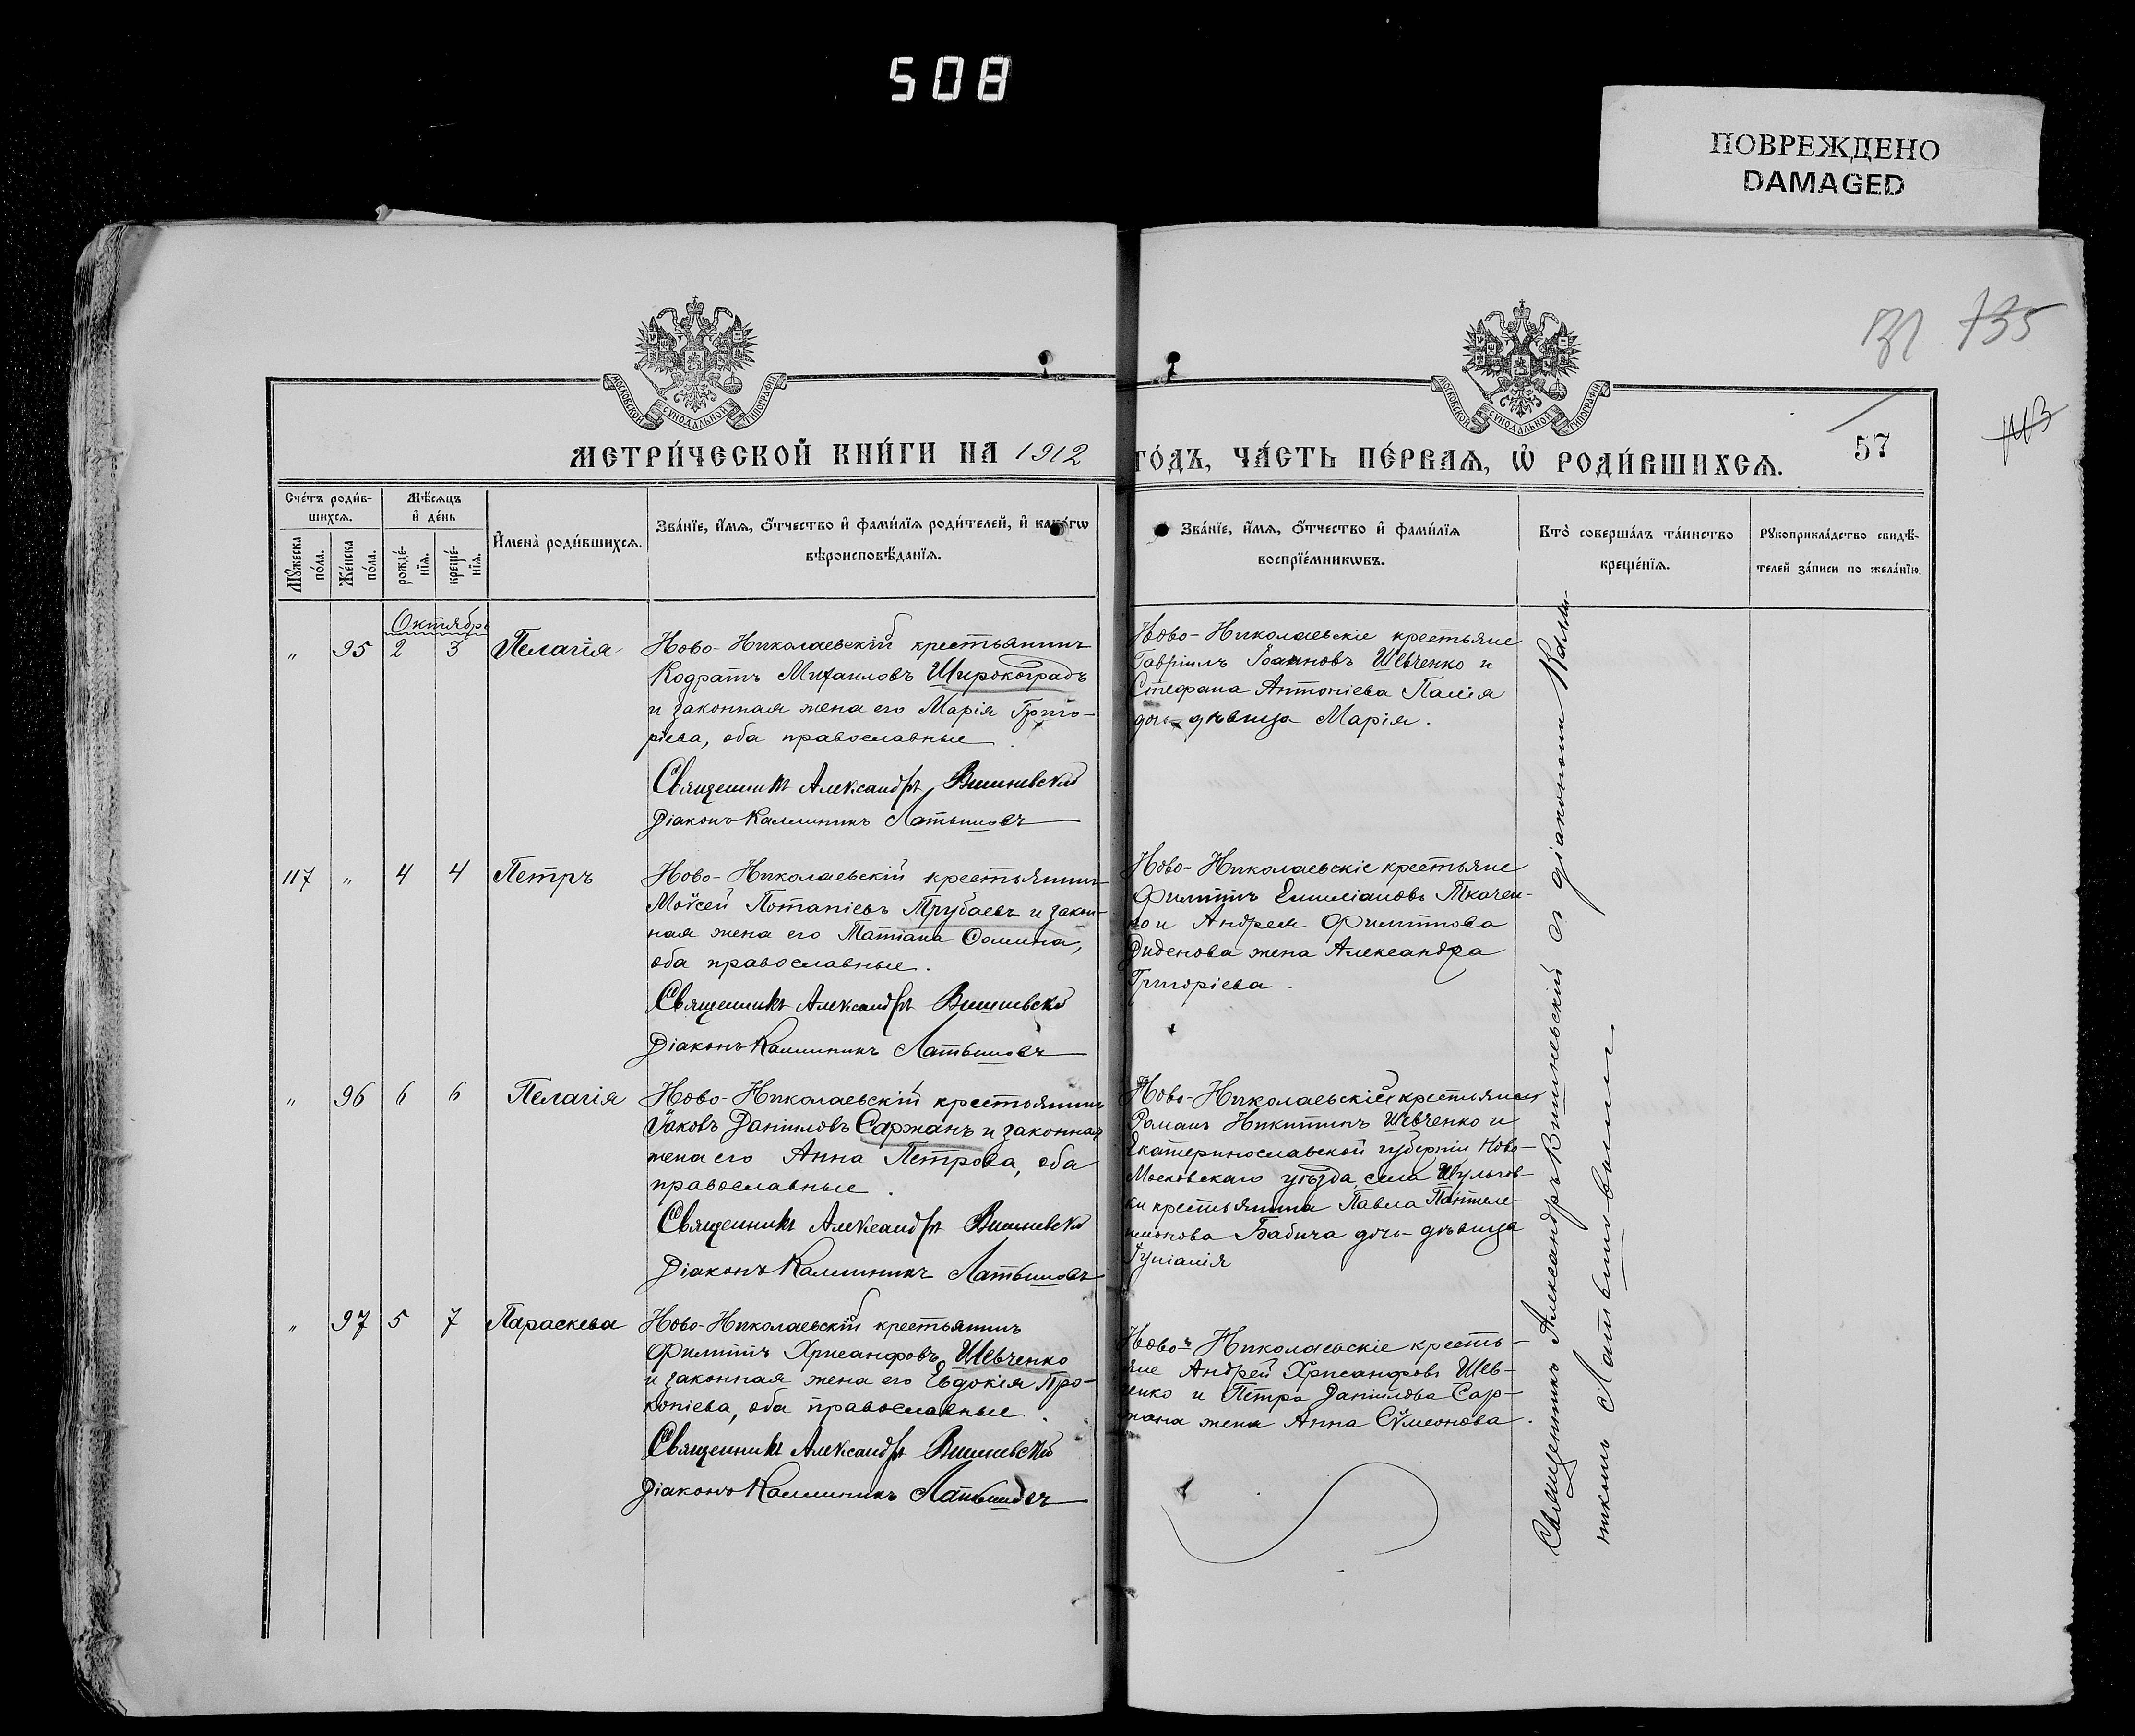 508
ПОВРЕЖДЕНО
DAMAGED
735
МОСКОВСКОЙ СѴНОДАЛЬНОЙ ТИПОГРАФІИ
МОСКОВСКОЙ СѴНОДАЛЬНОЙ ТИПОГРАФІИ
МЕТРИ́ЧЕСКОЙ КНИ́ГИ НА 1912
ГО́ДЪ, ЧА́СТЬ ПЕ́РВАЯ, Ѡ҆ РОДИ́ВШИХСЯ.
57
Сче́тъ роди́в-
шихся.
Мѣ́сяцъ
и҆ де́нь
Мꙋ́жеска по́ла.
Же́нска по́ла.
рожде́нїя.
креще́нїя.
И҆мена̀ роди́вшихся.
Зва́нїе, и҆́мя, ѻ҆́тчество и҆ фами́лїя роди́телей, и҆ како́гѡ
вѣроисповѣ́данїя.
Зва́нїе, и҆́мя, ѻ҆́тчество и҆ фами́лїя
воспрїе́мникѡвъ.
Кто̀ соверша́лъ та́инство
креще́нїя.
Рꙋкоприкла́дство свидѣ́-
телей за́писи по жела́нїю.
Октябрь
" 95 2 3 Пелагія
Ново-Николаевскій крестьянинъ
Кодратъ Михаиловъ Широкоградъ
и законная жена его Марія Григо-
ріева, оба православные.
Священникъ Александръ Вишневскій
Діаконъ Каллиникъ Латышовъ
Ново-Николаевскіе крестьяне
Гавріилъ Іоанновъ Шевченко и
Стефана Антоніева Палія
дочь-дѣвица Марія.
117 " 4 4 Петръ
Ново-Николаевскій крестьянинъ
Моѵсей Потапіевъ Трубаевъ и закон-
ная жена его Татіана Ѳомина,
оба православные.
Священникъ Александръ Вишневскій
Діаконъ Каллиникъ Латышовъ
Ново-Николаевскіе крестьяне
Филиппъ Емиліановъ Ткачен-
ко и Андрея Филиппова
Диденова жена Александра
Григоріева.
" 96 6 6 Пелагія
Ново-Николаевскій крестьянинъ
Іаковъ Даніиловъ Саржанъ и законная
жена его Анна Петрова, оба
православные.
Священникъ Александръ Вишневскій
Діаконъ Каллиникъ Латышовъ
Ново-Николаевскій крестьянинъ
Романъ Никитинъ Шевченко и
Екатеринославской губерніи Ново-
Московскаго уѣзда, села Шульгов-
ки крестьянина Павла Пантеле-
имонова Бабича дочь-дѣвица
" 97 5 7 Параскева
Ново-Николаевскій крестьянинъ
Филиппъ Хрисанфовъ Шевченко
и законная жена его Евдокія Про-
копіева, оба православные.
Священникъ Александръ Вишневскій
Діаконъ Каллиникъ Латышовъ
Ново-Николаевскіе кресть-
яне Андрей Хрисанфовъ Шев-
ченко и Петра Даніилова Сар-
жана жена Анна Сѵмеонова.
Священникъ Александръ Вишневскій съ діакономъ Калли-
никомъ Латышовымъ